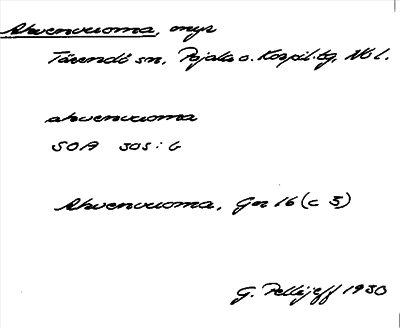 Ahvenvuoma, myr
Tärendö sn, Pajala o. Korpil. tg, Nb l.
ahvenvuoma
SOA 303: 6
Ahvenvuoma, Gn 16 (c 3)
G. Pellijeff 1930